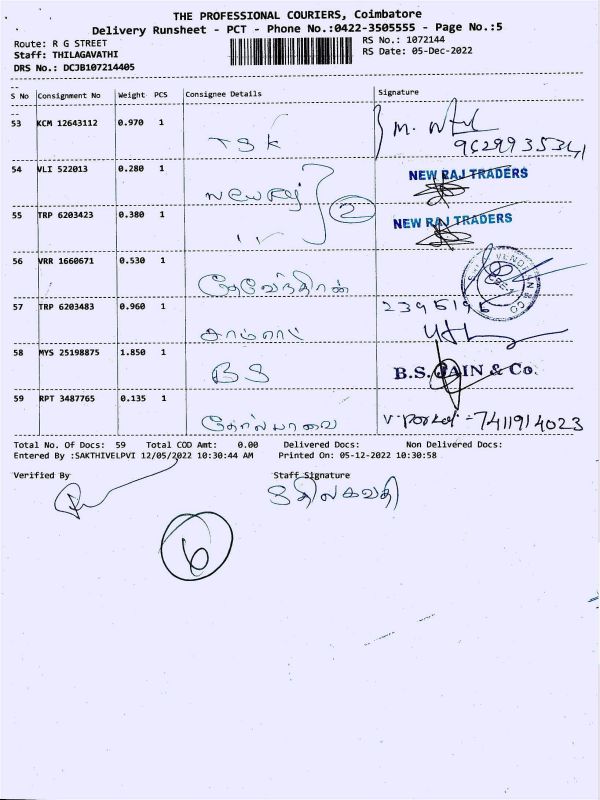 THE PROFESSIONAL COURIERS, Coimbatore
Delivery Runsheet - PCT - Phone No.:0422-3505555 - Page No.:5
Route: R G STREET
RS No.: 1072144
Staff: THILAGAVATHI
RS Date: 05-Dec-2022
DRS No.: DCJB107214405
S No Consignment No Weight PCS Consignee Details Signature
53 KCM 12643112 0.970 1
TSK
M.
54 VLI 522013 0.280 1
New Raj
NEW RAJ TRADERS
2
55 TRP 6203423 0.380 1
NEW RAJ TRADERS
56 VRR 1660671 0.530 1
57 TRP 6203483 0.960 1
2395196
58 MYS 25198875 1.850 1
BS
B.S. JAIN & Co.
59 RPT 3487765 0.135 1
7411914023
Total No. Of Docs: 59 Total COD Amt: 0.00 Delivered Docs: Non Delivered Docs:
Entered By :SAKTHIVELPVI 12/05/2022 10:30:44 AM Printed On: 05-12-2022 10:30:58
Verified By Staff Signature
திலகவதி
6